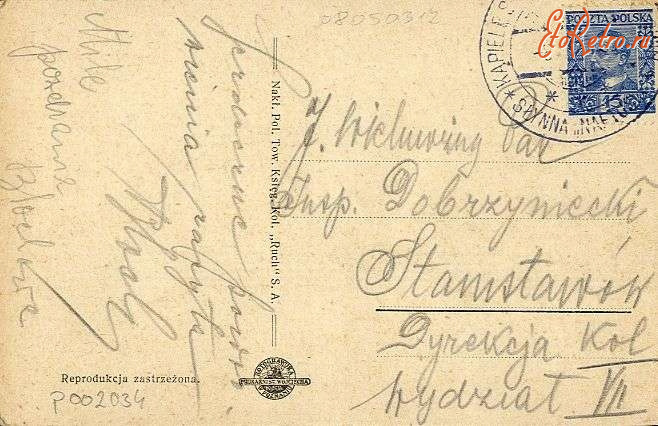 08050312
EtoRetro.ru
POCZTA POLSKA
15
* KĄPIELE
SŁYNNA „NAF
Miłe
pozdrowie
Serdeczne pozdro
wienia
Nakł. Pol. Tow. Księg. Kol. „Ruch" S. A.
J. Wielmożny Pan
Insp. Dobrzyniecki
Stanisławów
Dyrekcja Kol
Wydział VII
Reprodukcja zastrzeżona.
P002034
DRUKARNI ST. WOJCIECHA